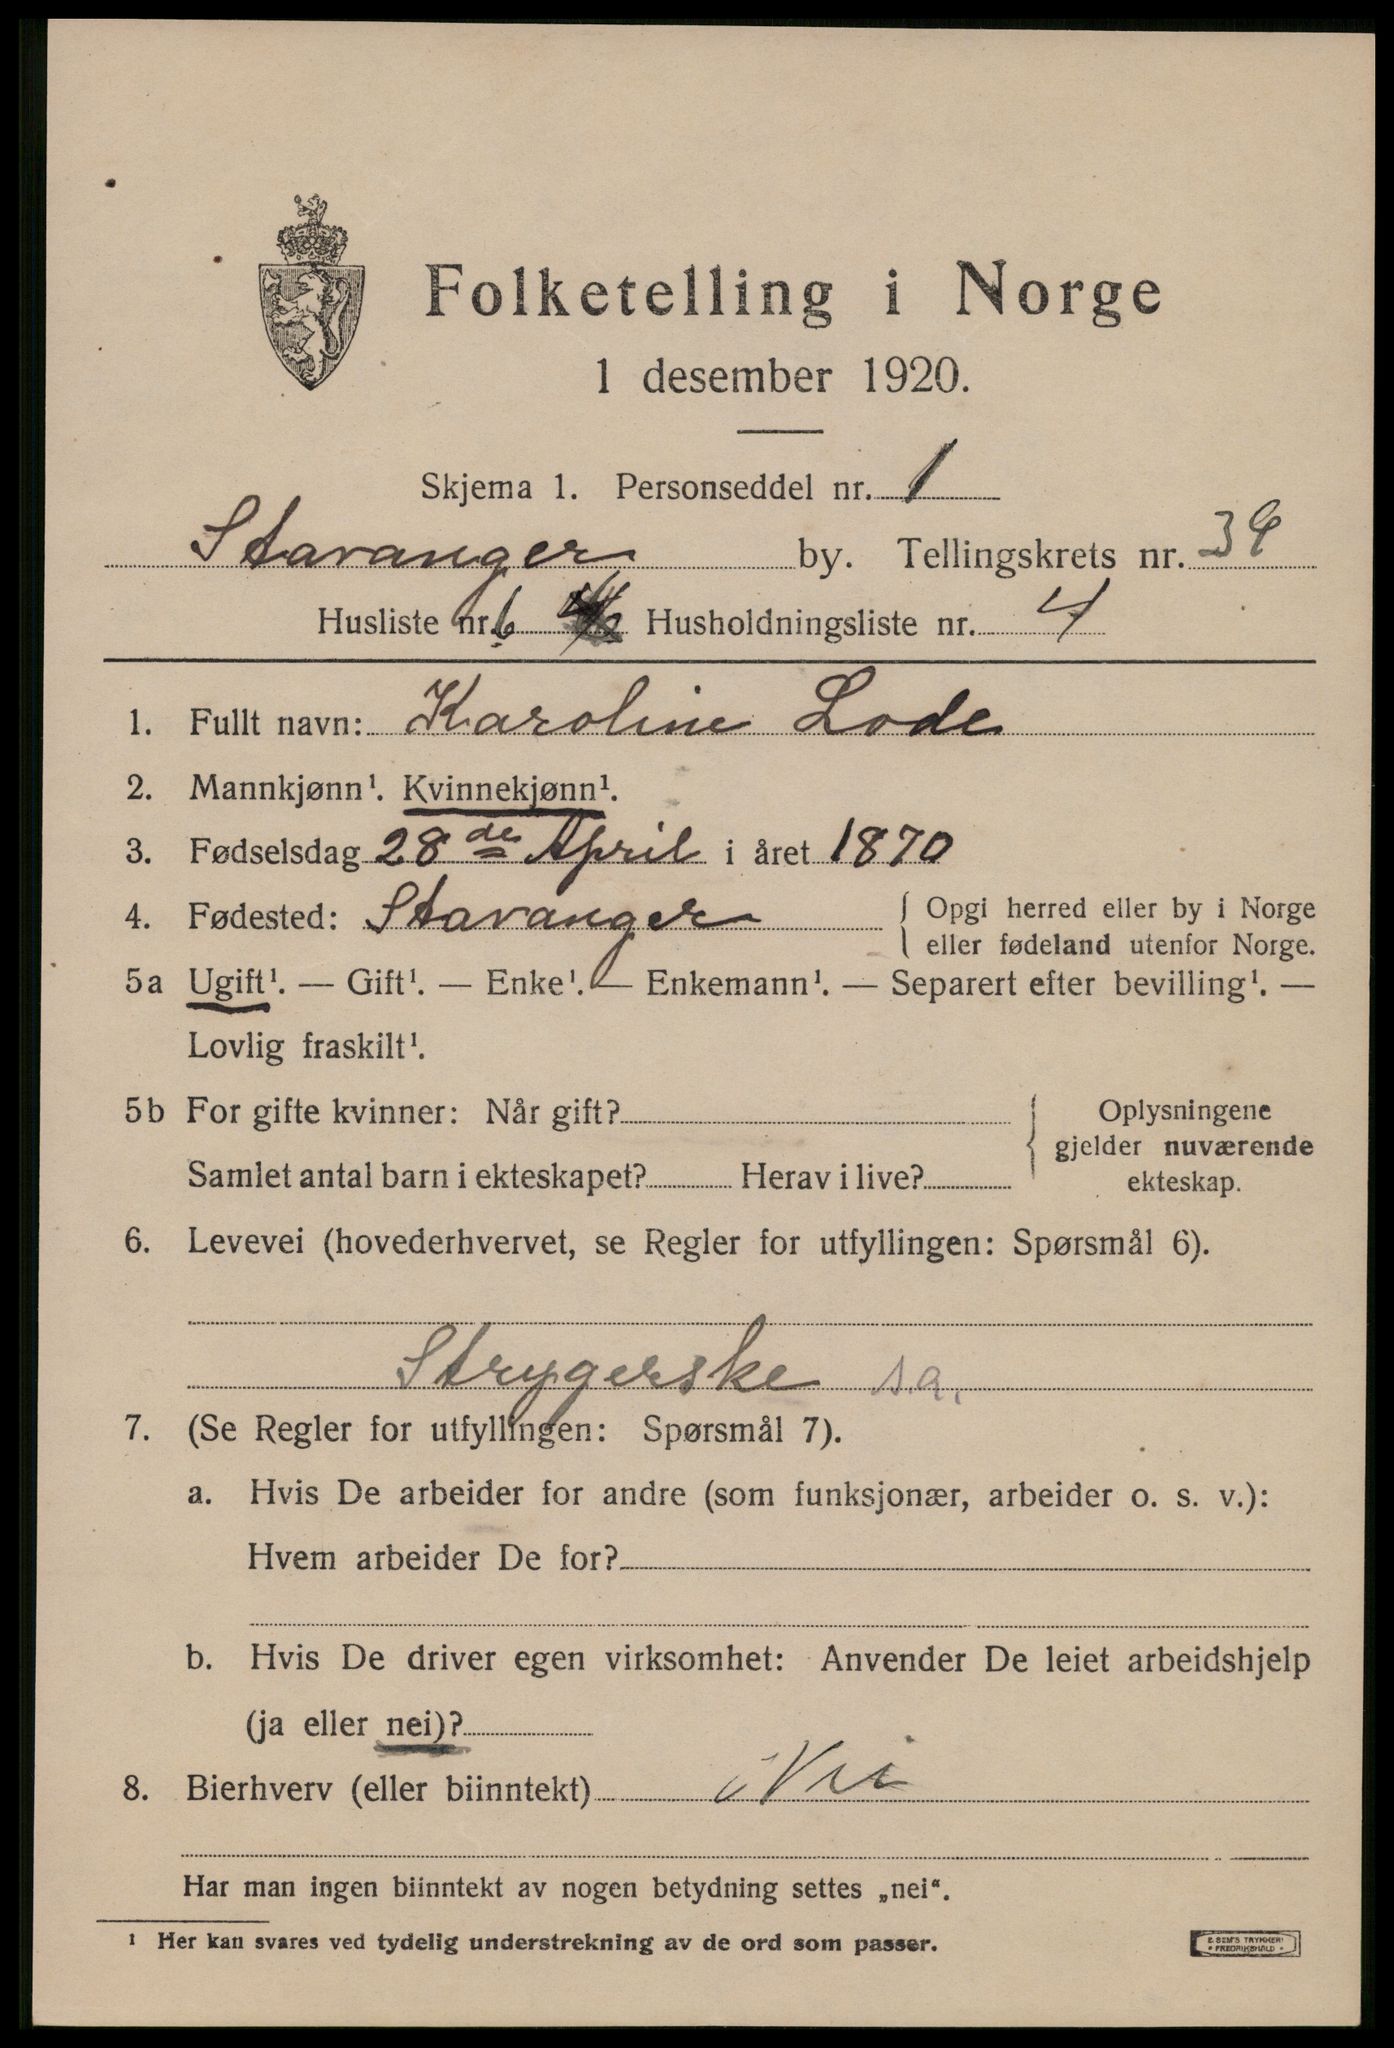 Folketelling i Norge
1 desember 1920.
Skjema 1. Personseddel nr. 1
Stavanger by. Tellingskrets nr. 39
Husliste nr. 6 Husholdningsliste nr. 4
1. Fullt navn: Karoline Lode
2. Mannkjønn¹. Kvinnekjønn¹.
3. Fødselsdag 28de April i året 1870
4. Fødested: Stavanger { Opgi herred eller by i Norge
eller fødeland utenfor Norge.
5a Ugift¹. — Gift¹. — Enke¹. — Enkemann¹. — Separert efter bevilling¹. —
Lovlig fraskilt¹.
5b For gifte kvinner: Når gift? { Oplysningene
gjelder nuværende
Samlet antal barn i ekteskapet? Herav i live? ekteskap.
6. Levevei (hovederhvervet, se Regler for utfyllingen: Spørsmål 6).
Strygerske s.a.
7. (Se Regler for utfyllingen: Spørsmål 7).
a. Hvis De arbeider for andre (som funksjonær, arbeider o. s. v.):
Hvem arbeider De for?
b. Hvis De driver egen virksomhet: Anvender De leiet arbeidshjelp
(ja eller nei)?
8. Bierhverv (eller biinntekt) Nei
Har man ingen biinntekt av nogen betydning settes „nei“.
¹ Her kan svares ved tydelig understrekning av de ord som passer.
E. SEM'S TRYKKERI
• FREDRIKSHALD •